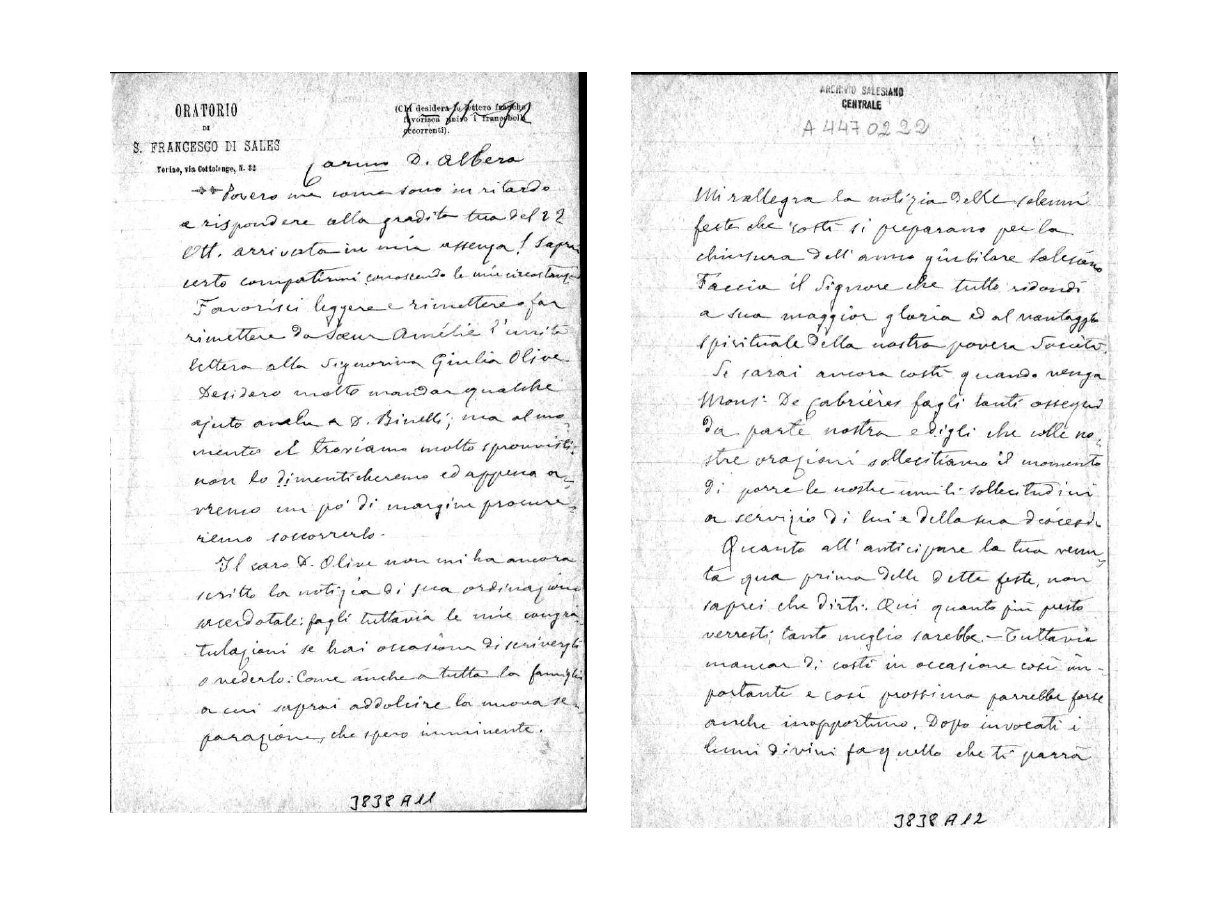 ORATORIO
DI
S. FRANCESCO DI SALES
Torino, via Cottolengo, N. 32
(Chi desidera le lettere franche
favorisca unire i francobolli
occorrenti).
Carmo D. Albera
Povero me come sono in ritardo
a rispondere alla gradita tua del 22
Ott. arrivata in mia assenza! Saprai
certo compatirmi conoscendo le mie circostanze
Favorisci leggere e rimettere o far
rimettere da Sœur Amélie l'unita
lettera alla Signorina Giulia Olive
Desidero molto mandar qualche
ajuto anche a D. Binelli; ma al mo-
mento ci troviamo molto sprovvisti:
non lo dimenticheremo ed appena a-
vremo un po' di margine procure-
remo soccorrerlo.
Il caro D. Olive non mi ha ancora
scritto la notizia di sua ordinazione
sacerdotale: fagli tuttavia le mie congra-
tulazioni se hai occasione di scrivergli
o vederlo: Come anche a tutta la famiglia
a cui saprai addolcire la nuova se-
parazione, che spero imminente.
3838 A 11
ARCHIVIO SALESIANO
CENTRALE
A 4470222
Mi rallegra la notizia delle solenni
feste che costì si preparano per la
chiusura dell'anno giubilare Salesiano
Faccia il Signore che tutto ridondi
a sua maggior gloria ed al vantaggio
spirituale della nostra povera Società.
Se sarai ancora costì quando venga
Mons: De Cabrières fagli tanti ossequi
da parte nostra e digli che colle no-
stre orazioni sollecitiamo il momento
di porre le nostre umili sollecitudini
a servizio di lui e della sua diocesi.
Quanto all'anticipare la tua venu-
ta qua prima delle dette feste, non
saprei che dirti. Qui quanto più presto
verresti; tanto meglio sarebbe. - Tuttavia
mancar di costì in occasione così im-
portante e così prossima parrebbe forse
anche inopportuno. Dopo invocati i
lumi divini fa quello che ti parrà
3838 A 12